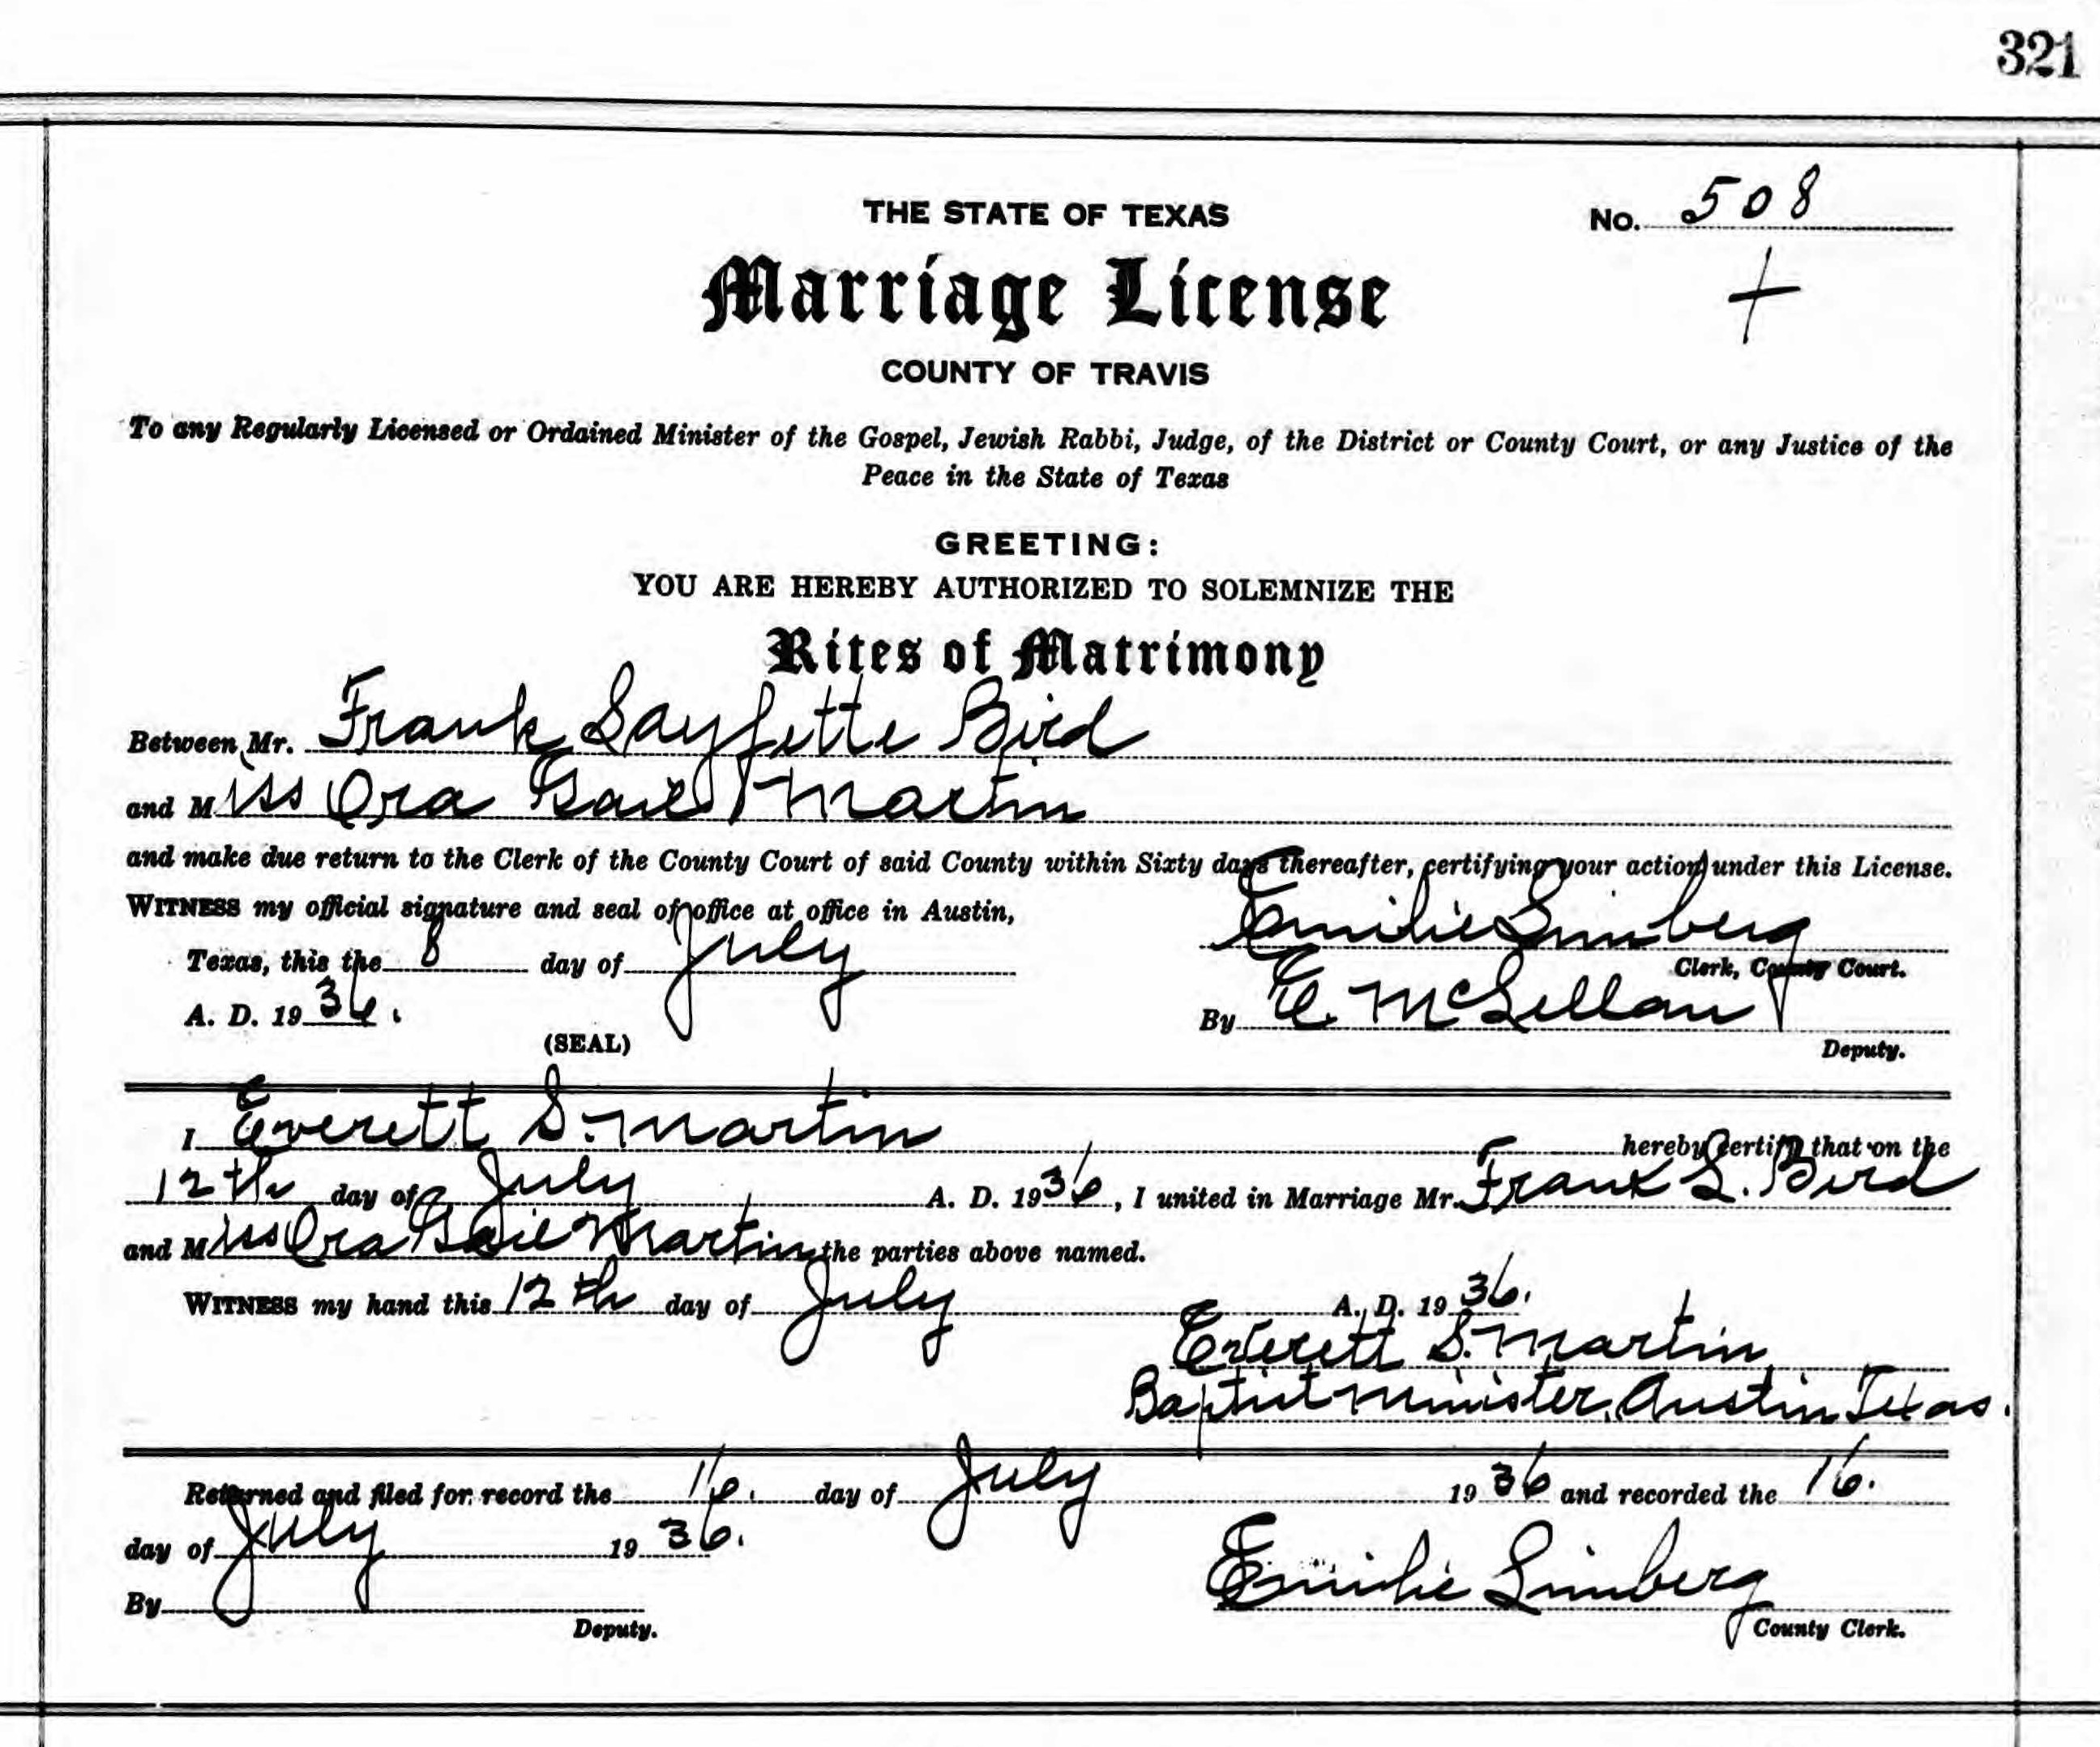 321
THE STATE OF TEXAS
No. 508
+
Marriage License
COUNTY OF TRAVIS
To any Regularly Licensed or Ordained Minister of the Gospel, Jewish Rabbi, Judge, of the District or County Court, or any Justice of the
Peace in the State of Texas
GREETING:
YOU ARE HEREBY AUTHORIZED TO SOLEMNIZE THE
Rites of Matrimony
Between Mr. Frank Layfette Bird
and Miss Ora Gail Martin
and make due return to the Clerk of the County Court of said County within Sixty days thereafter, certifying your action under this License.
WITNESS my official signature and seal of office at office in Austin,
Emilie Limberg
Texas, this the 8 day of July
Clerk, County Court.
A. D. 1936.
By E. McLellan
(SEAL)
Deputy.
I Everett S. Martin hereby certify that on the
12th day of July A. D. 1936, I united in Marriage Mr. Frank L. Bird
and Miss Ora Gail Martin the parties above named.
WITNESS my hand this 12th day of July A. D. 1936.
Everett S. Martin,
Baptist Minister, Austin Texas.
Returned and filed for record the 16. day of July 1936 and recorded the 16.
day of July 1936.
Emilie Limberg
By
Deputy.
County Clerk.